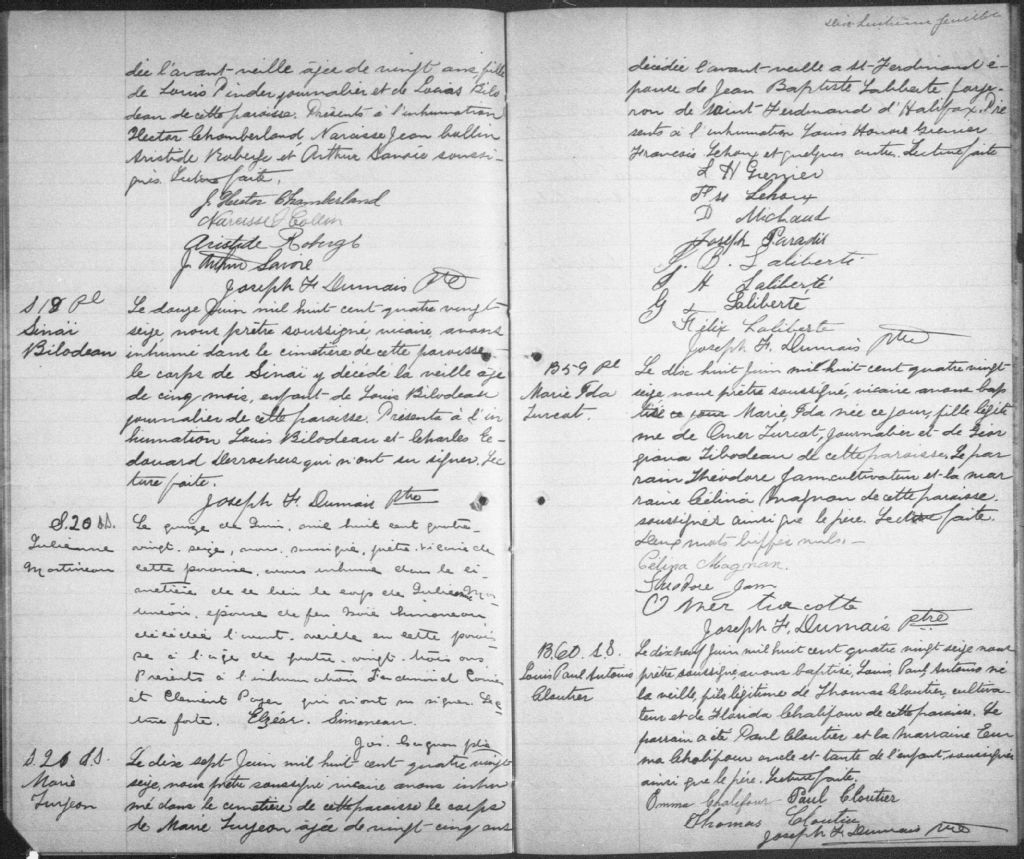 dée l'avant-veille âgée de vingt ans, fille
de Louis Pinder journalier et de Louise Bilo
deau de cette paroisse. Présents à l'inhumation
Hector Chamberland, Narcisse Jean Collin
Aristide Roberge et Arthur Savoie soussi-
gnés. Lecture faite.
J. Hector Chamberland
Narcisse J Collin
Aristide Roberge
J. Arthur Savoie
Joseph F. Dumais ptre
S 19 pl
Sinaï
Bilodeau
Le douze Juin mil huit cent quatre vingt
seize, nous prêtre soussigné, vicaire, avons
inhumé dans le cimetière de cette paroisse
le corps de Sinaï y décédé la veille âgé
de cinq mois, enfant de Louis Bilodeau
journalier de cette paroisse. Présents à l'in
humation Louis Bilodeau et Charles E-
douard Desrochers qui n'ont su signer. Lec
ture faite.
Joseph F. Dumais ptre
S. 20 s.s.
Julienne
Martineau
Le quinze de Juin, mil huit cent quatre-
vingt-seize, nous, soussigné, prêtre-vicaire de
cette paroisse, avons inhumé dans le ci-
metière de ce lieu le corps de Julienne Mar
tineau, épouse de feu Noé Simoneau
décédée l'avant-veille en cette parois-
se à l'âge de quatre-vingt-trois ans
Présents à l'inhumation Ferdinand
et Clement qui n'ont su signer. Lec
ture faite. Elzéar Simoneau.
Jos. Gagnon ptre
S. 21 s.s.
Marie
Turgeon
Le dix sept Juin mil huit cent quatre vingt
seize, nous prêtre soussigné vicaire avons inhu
mé dans le cimetière de cette paroisse le corps
de Marie Turgeon âgée de vingt-cinq ans
Dix huitième feuillet
décédée l'avant-veille a St-Ferdinand é-
pouse de Jean Baptiste Laliberté forge-
ron de Saint-Ferdinand d'Halifax. Pré
sents à l'inhumation Louis Honoré Grenier
François Lehoux et quelques autres. Lecture faite
L H Grenier
Frs Lehoux
D Michaud
Joseph Paradis
J. B. Laliberté
J. A Laliberté
G L Laliberté
Félix Laliberté
Joseph F. Dumais ptre
B 59 pl
Marie Ida
Turcot
Le dix huit Juin mil huit cent quatre vingt
seize, nous prêtre soussigné, vicaire avons bap
tisé ce jour Marie, Ida née ce jour, fille légiti
me de Omer Turcot, journalier et de Geor
giana Tibodeau de cette paroisse. Le par
rain Théodore Jam cultivateur et la mar
raine Célina Magnan de cette paroisse.
soussignés ainsi que le père. Lecture faite.
Deux mots biffés nuls.-
Célina Magnan.
Théodore Jam
Omer turcotte
Joseph F. Dumais ptre
B.60 s.s.
Louis Paul Antonio
Cloutier
Le dix neuf Juin mil huit cent quatre vingt seize nous
prêtre soussigné, avons baptisé, Louis, Paul, Antonio né
la veille, fils légitime de Thomas Cloutier, cultiva-
teur et de Florida Chalifour de cette paroisse. Le
parrain a été Paul Cloutier et la marraine Em
ma Chalifour oncle et tante de l'enfant, soussignés
ainsi que le père. Lecture faite.
Emma Chalifour Paul Cloutier
Thomas Cloutier
Joseph F. Dumais ptre